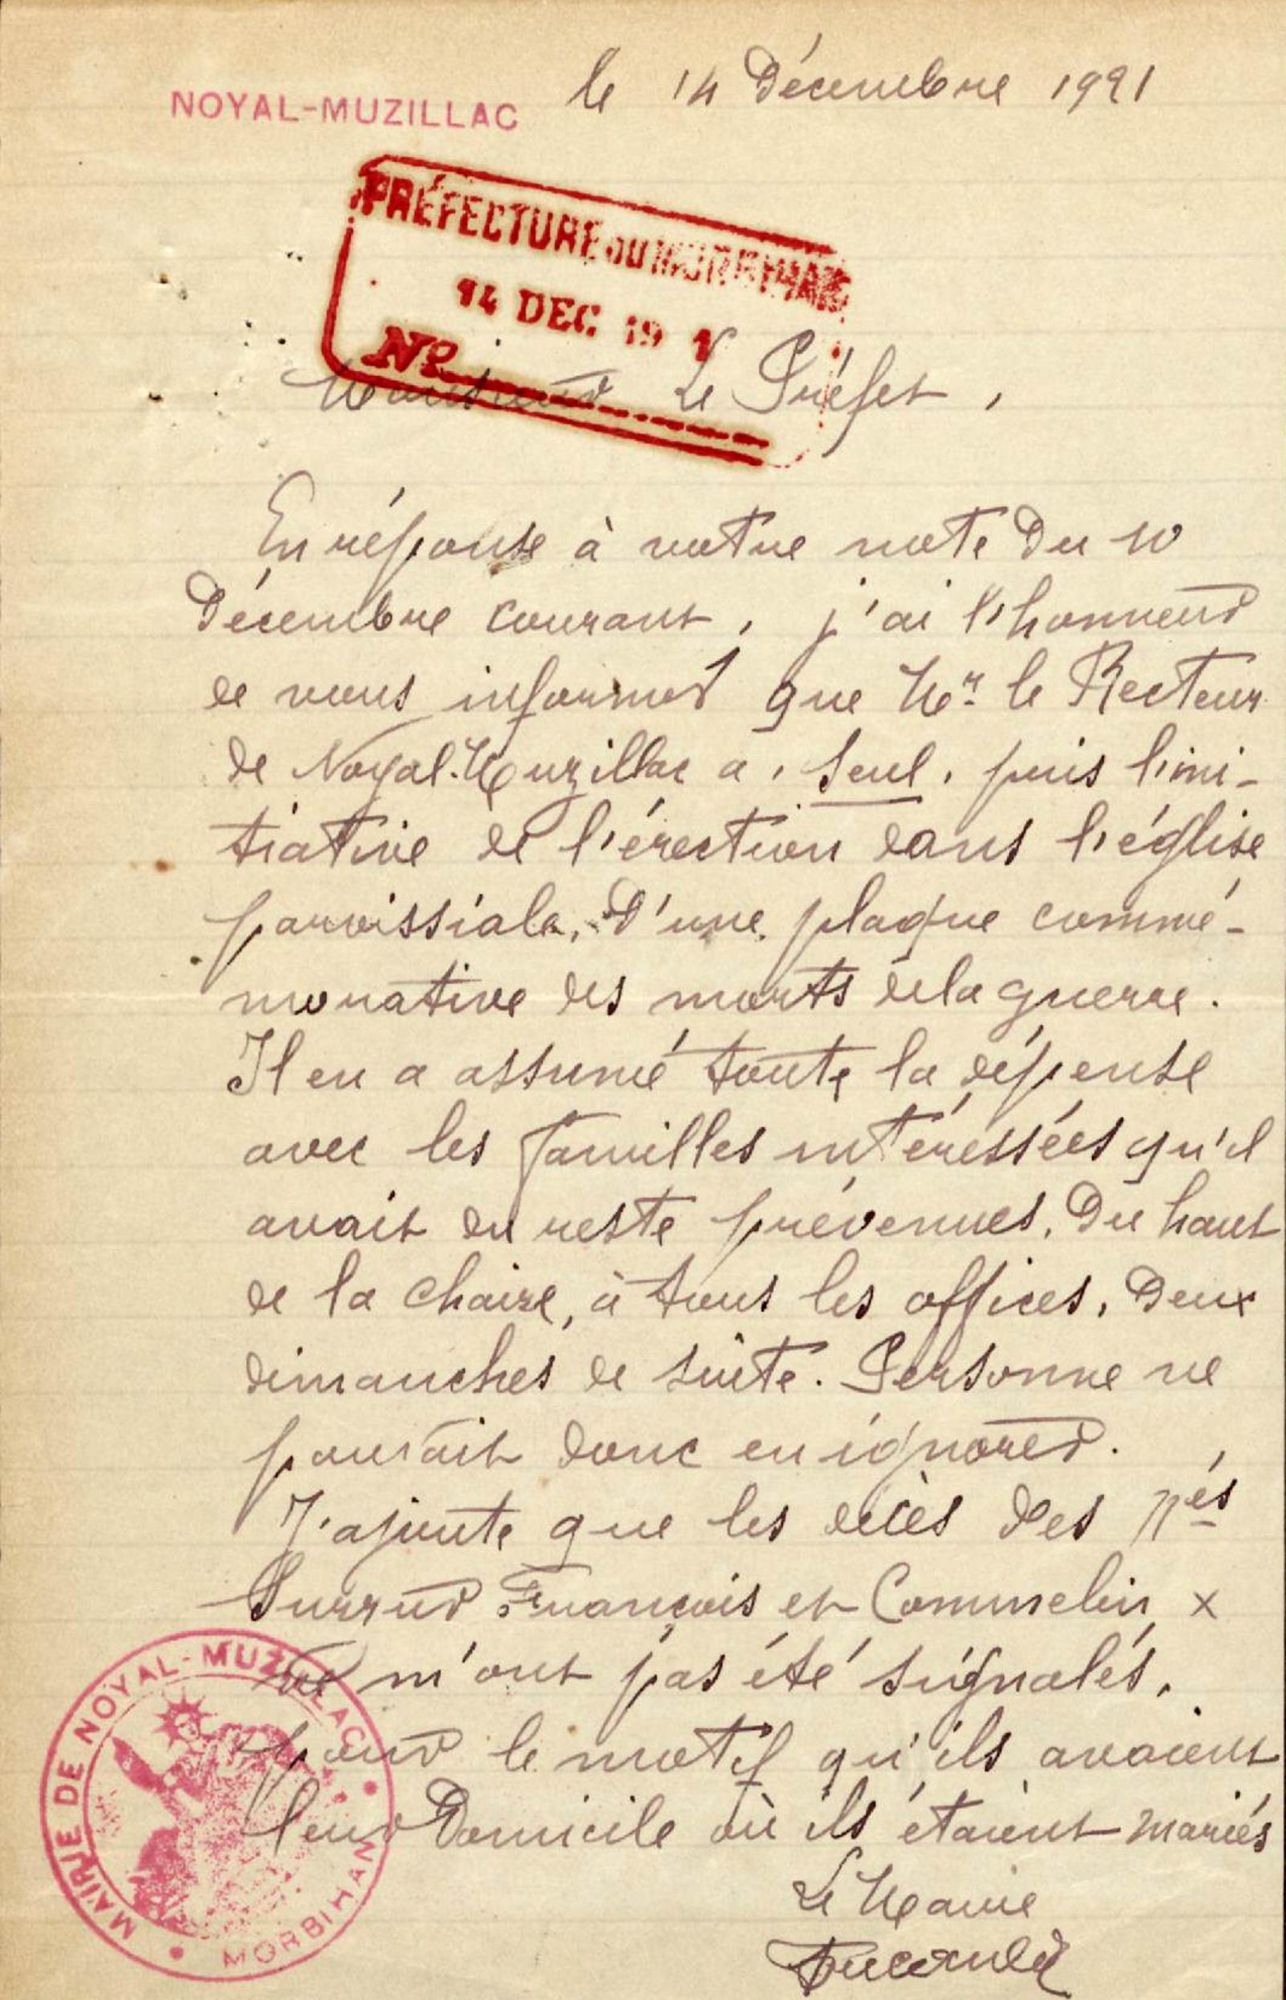 NOYAL-MUZILLAC
le 14 Décembre 1921
PRÉFECTURE DU MORBIHAN
14 DEC 19 1
No
Monsieur Le Préfet,
En réponse à votre note du 10
Décembre courant, j'ai l'honneur
de vous informer que Mr le Recteur
de Noyal-Muzillac a, seul, pris l'ini-
tiative de l'érection dans l'église
paroissiale, d'une plaque commé-
morative des morts de la guerre.
Il en a assumé toute la dépense
avec les familles intéressées qu'il
avait du reste prévenues, Du haut
de la chaire, à tous les offices, Deux
dimanches de suite. Personne ne
pouvait donc en ignorer.
J'ajoute que les décès des nés
François et Commelin x
ne m'ont pas été signalés,
pour le motif qu'ils avaient
leur Domicile où ils étaient mariés
Le Maire
MAIRIE DE NOYAL-MUZILLAC
MORBIHAN